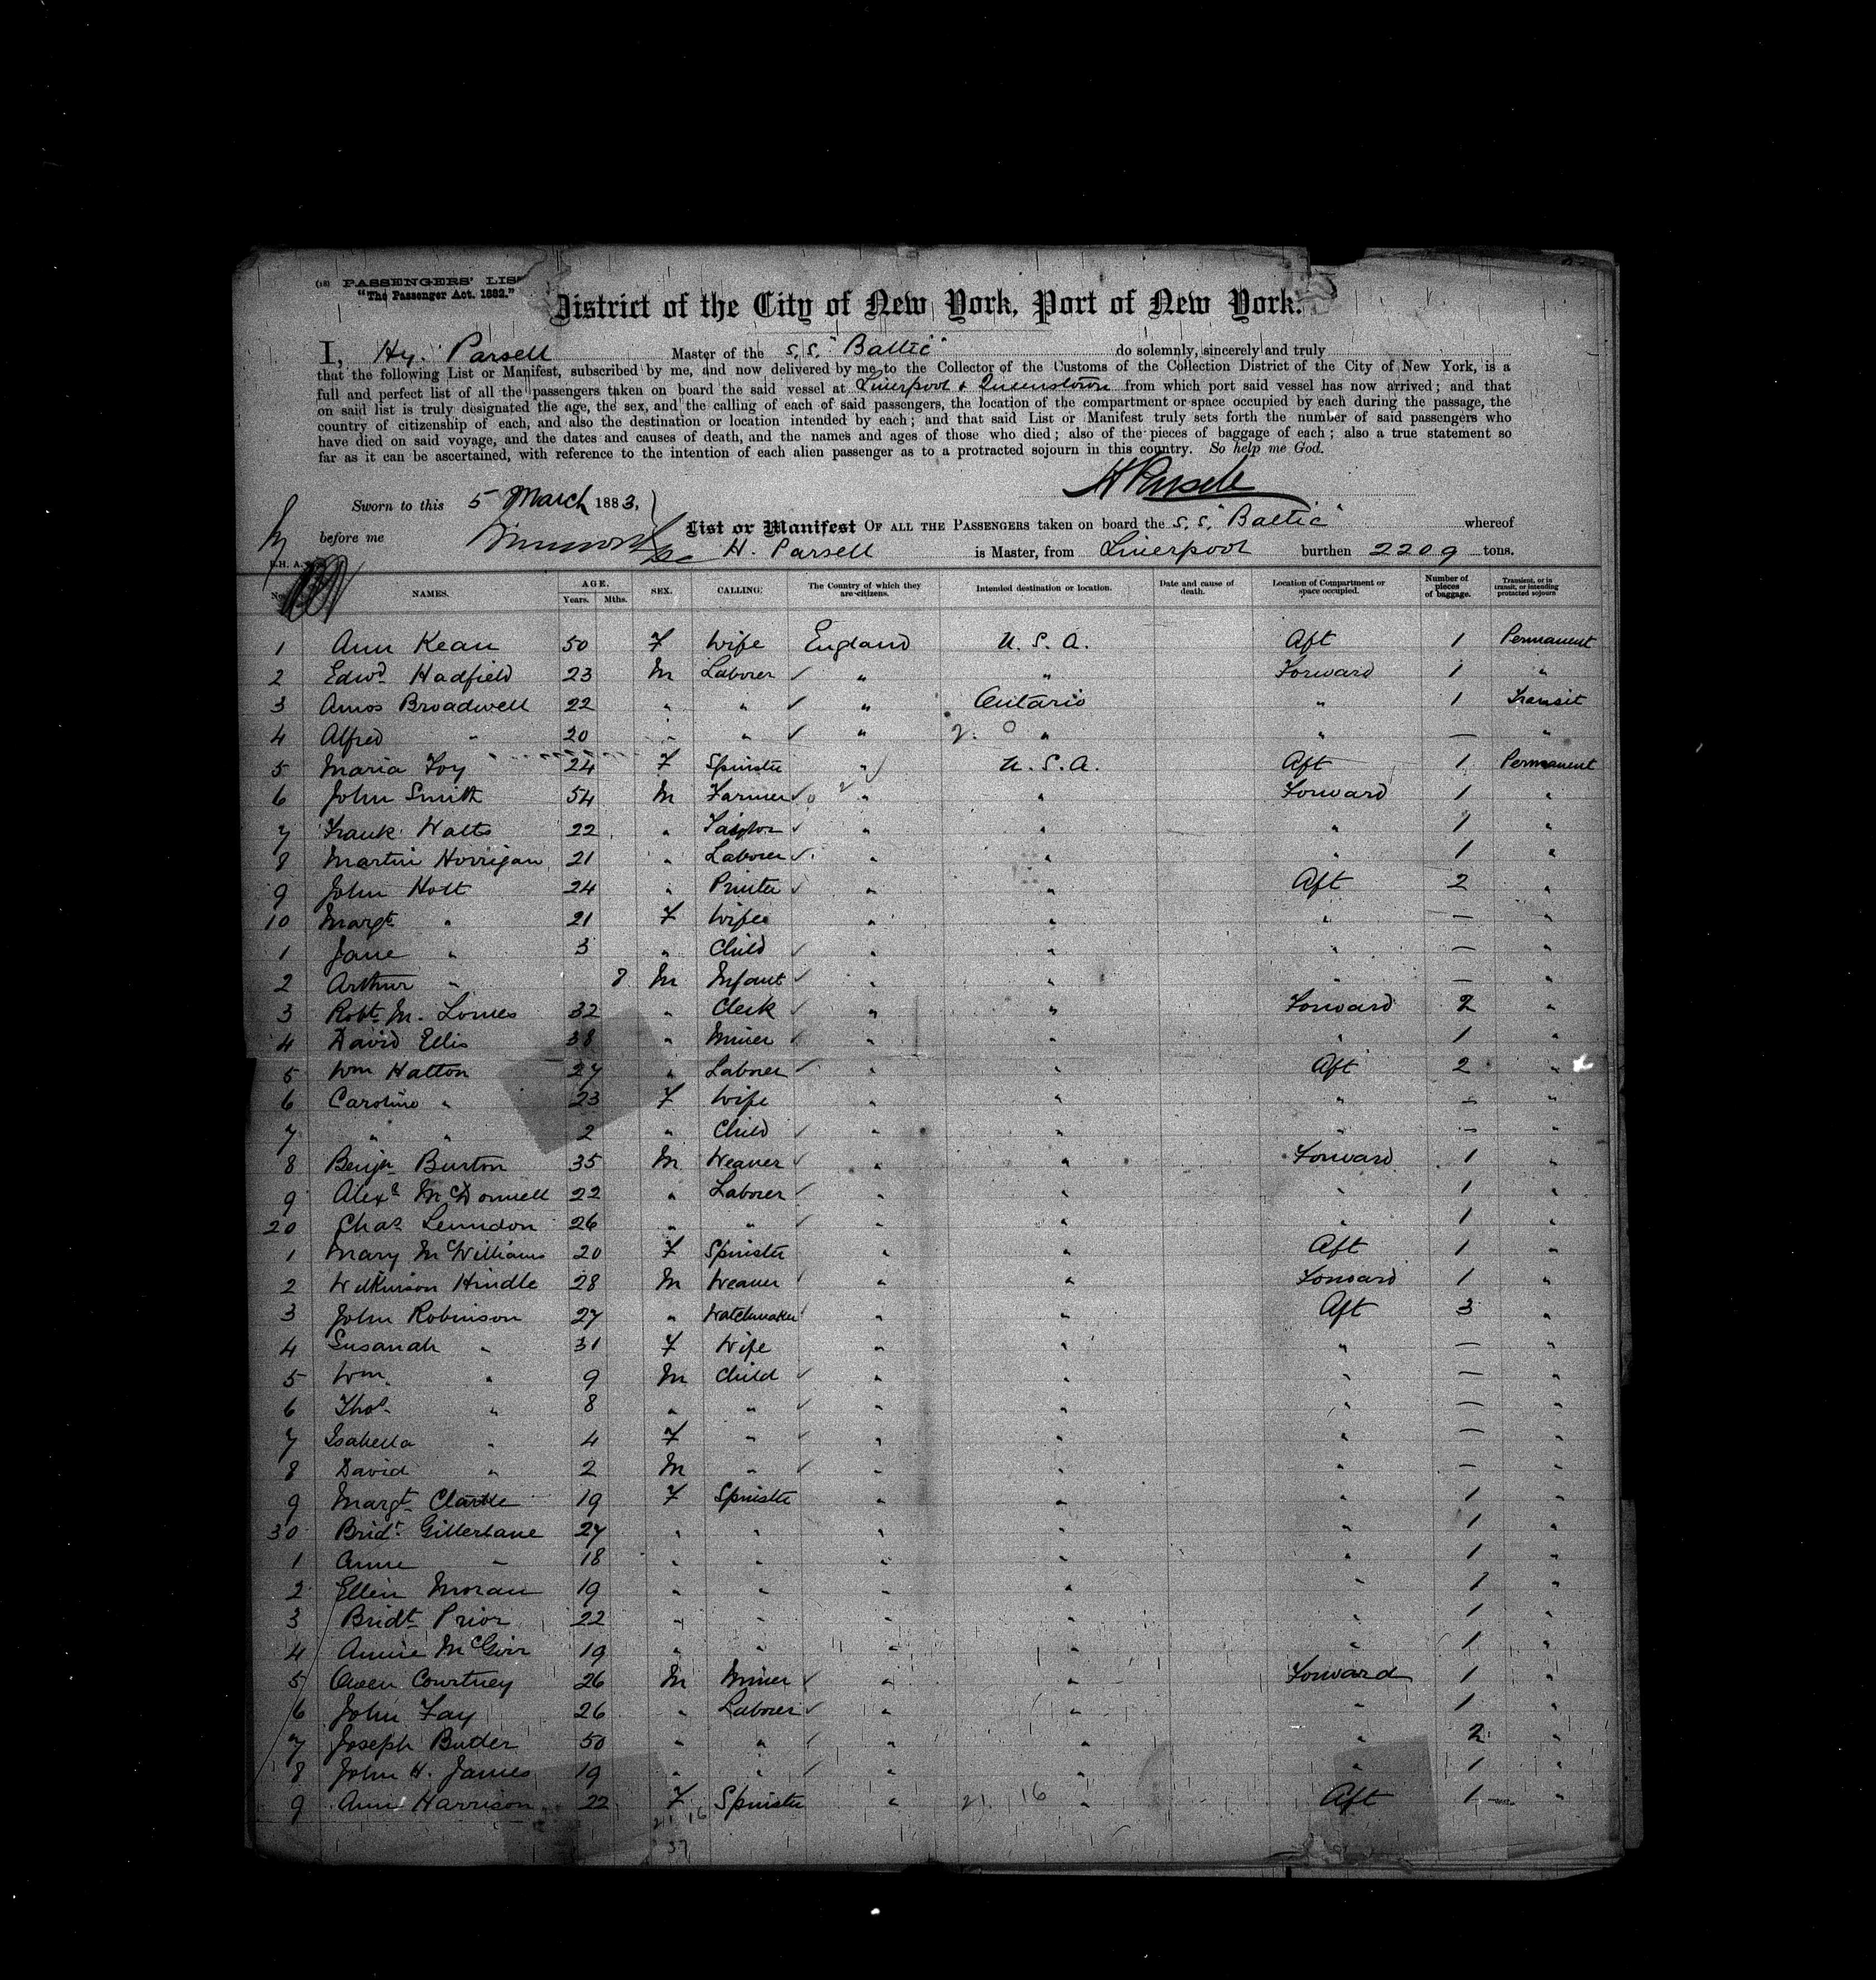 (18) PASSENGERS' LIST
"The Passenger Act. 1882."
District of the City of New York, Port of New York.
I, Hy. Parsell Master of the S.S. "Baltic" do solemnly, sincerely and truly
that the following List or Manifest, subscribed by me, and now delivered by me to the Collector of the Customs of the Collection District of the City of New York, is a
full and perfect list of all the passengers taken on board the said vessel at Liverpool & Queenstown from which port said vessel has now arrived; and that
on said list is truly designated the age, the sex, and the calling of each of said passengers, the location of the compartment or space occupied by each during the passage, the
country of citizenship of each, and also the destination or location intended by each; and that said List or Manifest truly sets forth the number of said passengers who
have died on said voyage, and the dates and causes of death, and the names and ages of those who died; also of the pieces of baggage of each; also a true statement so
far as it can be ascertained, with reference to the intention of each alien passenger as to a protracted sojourn in this country. So help me God.
H Parsell
Sworn to this 5 March 1883,
before me
List or Manifest OF ALL THE PASSENGERS taken on board the S.S. "Baltic" whereof
H. Parsell is Master, from Liverpool burthen 2209 tons.
NAMES. AGE. Years. Mths. SEX. CALLING. The Country of which they are citizens. Intended destination or location. Date and cause of death. Location of Compartment or space occupied. Number of pieces of baggage. Transient, or in transit, or intending protracted sojourn
1 Ann Kean 50 F Wife England U.S.A. Aft 1 Permanent
2 Edwd. Hadfield 23 M Laborer " " Forward 1 "
3 Amos Broadwell 22 " " " Ontario " 1 Transit
4 Alfred " 20 " " " " " — "
5 Maria Foy 24 F Spinster " U.S.A. Aft 1 Permanent
6 John Smith 54 M Farmer " " Forward 1 "
7 Frank Watts 22 " " " " 1 "
8 Martin Horrigan 21 " Laborer " " " 1 "
9 John Holt 24 " Printer " " Aft 2 "
10 Margt. " 21 F Wife " " " — "
1 Jane " 3 " Child " " " — "
2 Arthur " 8 M Infant " " " — "
3 Robt. M. Lomes 32 " Clerk " " Forward 2 "
4 David Ellis 38 " Miner " " " 1 "
5 Wm Hatton 27 " Laborer " " Aft 2 "
6 Caroline " 23 F Wife " " " — "
7 " " 2 " Child " " " — "
8 Benjn. Burton 35 M Weaver " " Forward 1 "
9 Alexr. McDonnell 22 " Laborer " " " 1 "
20 Chas. Lenndon 26 " " " " " 1 "
1 Mary McWilliams 20 F Spinster " " Aft 1 "
2 Wilkinson Hindle 28 M Weaver " " Forward 1 "
3 John Robinson 27 " Watchmaker " " Aft 3 "
4 Susanah " 31 F Wife " " " — "
5 Wm. " 9 M Child " " " — "
6 Thos. " 8 " " " " " — "
7 Isabella " 4 F " " " " — "
8 David " 2 M " " " " — "
9 Margt. Clarke 19 F Spinster " " " 1 "
30 Bridt. Gillerlane 27 " " " " " 1 "
1 Anne " 18 " " " " " 1 "
2 Ellen Moran 19 " " " " " 1 "
3 Bridt. Prior 22 " " " " " 1 "
4 Annie McGirr 19 " " " " " 1 "
5 Owen Courtney 26 M Miner " " Forward 1 "
6 John Fay 26 " Laborer " " " 1 "
7 Joseph Butler 50 " " " " " 2 "
8 John H. James 19 " " " " " 1 "
9 Ann Harrison 22 F Spinster " " Aft 1 "
21 16
37